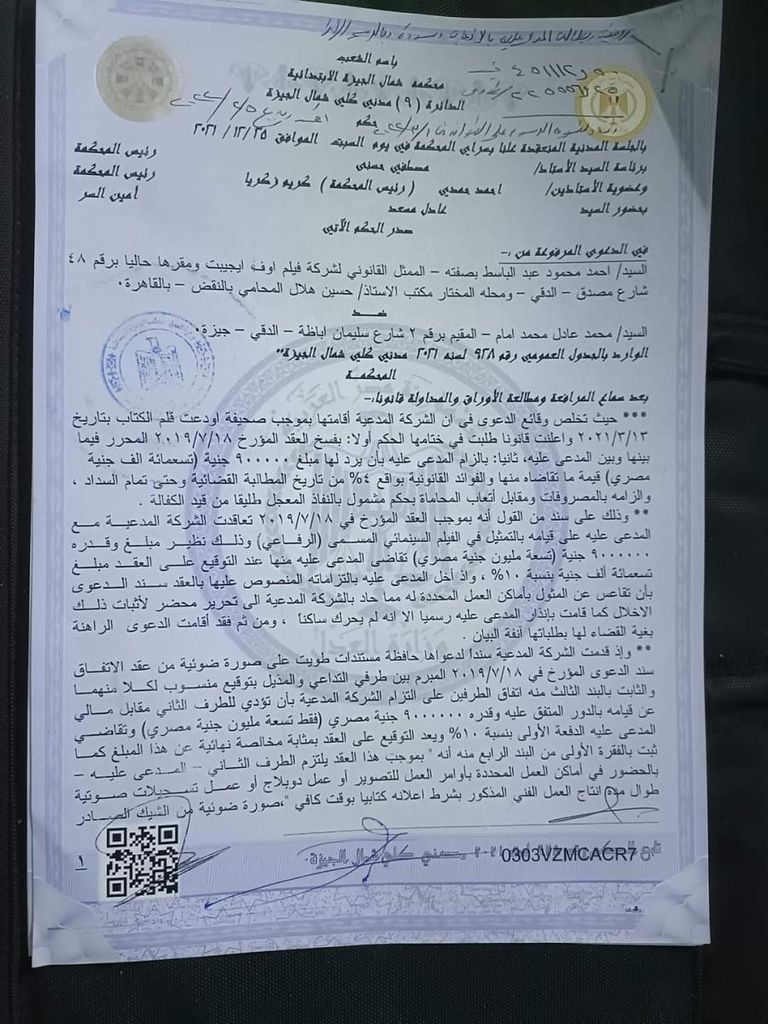 باسم الشعب
محكمة شمال الجيزة الابتدائية
الدائرة ( ٩ ) مدني كلي شمال الجيزة
حكم
بالجلسة المدنية المنعقدة علنا بسراي المحكمة في يوم السبت الموافق ٢٠٢١/١٢/٢٥
برئاسة السيد الأستاذ/ مصطفى حسنى رئيس المحكمة
وعضوية الأستاذين/ احمد حمدي ( رئيس المحكمة ) كريم زكريا رئيس المحكمة
بحضور السيد عادل مسعد أمين السر
صدر الحكم الآتي
في الدعوى المرفوعة من :-
السيد/ احمد محمود عبد الباسط بصفته – الممثل القانوني لشركة فيلم اوف ايجيبت ومقرها حاليا برقم ٤٨
شارع مصدق – الدقي – ومحله المختار مكتب الاستاذ/ حسين هلال المحامي بالنقض – بالقاهرة.
ضد
السيد/ محمد عادل محمد امام – المقيم برقم ٢ شارع سليمان اباظة – الدقي – جيزة.
الوارد بالجدول العمومي رقم ٩٢٨ لسنه ٢٠٢١ مدني كلي شمال الجيزة**
المحكمة
بعد سماع المرافعة ومطالعة الأوراق والمداولة قانونا:-
*** حيث تخلص وقائع الدعوى في ان الشركة المدعية أقامتها بموجب صحيفة اودعت قلم الكتاب بتاريخ
٢٠٢١/٣/١٣ واعلنت قانونا طلبت في ختامها الحكم أولا: بفسخ العقد المؤرخ ٢٠١٩/٧/١٨ المحرر فيما
بينها وبين المدعى عليه، ثانيا: بالزام المدعى عليه بأن يرد لها مبلغ ٩٠٠٠٠٠ جنية (تسعمائة الف جنية
مصري) قيمة ما تقاضاه منها والفوائد القانونية بواقع ٤% من تاريخ المطالبة القضائية وحتى تمام السداد ،
والزامه بالمصروفات ومقابل أتعاب المحاماة بحكم مشمول بالنفاذ المعجل طليقا من قيد الكفالة .
** وذلك على سند من القول أنه بموجب العقد المؤرخ في ٢٠١٩/٧/١٨ تعاقدت الشركة المدعية مع
المدعى عليه على قيامه بالتمثيل في الفيلم السينمائي المسمى (الرفاعي) وذلك نظير مبلغ وقدره
٩٠٠٠٠٠٠ جنية (تسعة مليون جنية مصري) تقاضى المدعى عليه منها عند التوقيع على العقد مبلغ
تسعمائة ألف جنية بنسبة ١٠% ، واذ أخل المدعى عليه بالتزاماته المنصوص عليها بالعقد سند الدعوى
بأن تقاعس عن المثول بأماكن العمل المحددة له مما حاد بالشركة المدعية الى تحرير محضر لأثبات ذلك
الاخلال كما قامت بإنذار المدعى عليه رسميا الا انه لم يحرك ساكنا ، ومن ثم فقد أقامت الدعوى الراهنة
بغية القضاء لها بطلباتها آنفة البيان .
** وإذ قدمت الشركة المدعية سندا لدعواها حافظة مستندات طويت على صورة ضوئية من عقد الاتفاق
سند الدعوى المؤرخ في ٢٠١٩/٧/١٨ المبرم بين طرفي التداعي والمذيل بتوقيع منسوب لكلا منهما
والثابت بالبند الثالث منه اتفاق الطرفين على التزام الشركة المدعية بأن تؤدي للطرف الثاني مقابل مالي
عن قيامه بالدور المتفق عليه وقدره ٩٠٠٠٠٠٠ جنية مصري (فقط تسعة مليون جنية مصري) وتقاضي
المدعى عليه الدفعة الأولى بنسبة ١٠% ويعد التوقيع على العقد بمثابة مخالصة نهائية عن هذا المبلغ كما
ثبت بالفقرة الأولى من البند الرابع منه أنه " بموجب هذا العقد يلتزم الطرف الثاني – المدعى عليه –
بالحضور في أماكن العمل المحددة بأوامر العمل للتصوير أو عمل دوبلاج أو عمل تسجيلات صوتية
طوال مدة انتاج العمل الفني المذكور بشرط اعلانه كتابيا بوقت كافي "،صورة ضوئية من الشيك الصادر
١
مدني كلي شمال الجيزة.
0303VZMCACR7